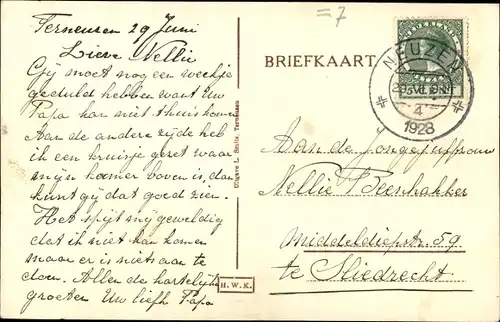 =7
Terneuzen 29 Juni
Lieve Nellie
Gij moet nog een weekje
geduld hebben want Uw
Papa kan niet thuis komen
Aan de andere zijde heb
ik een kruisje gezet waar
mijn kamer boven is, dan
kunt gij dat goed zien.
Het spijt mij geweldig
dat ik niet kan komen
maar er is niets aan te
doen. Allen de hartelijke
groeten Uw liefh Papa
Uitgave L. Terneuzen
H.W.K.
BRIEFKAART
NEDERLAND
NEUZEN
1928
Aan de Jongejuffrouw
Nellie Beenhakker
Middeldiepstr. 59
te Sliedrecht